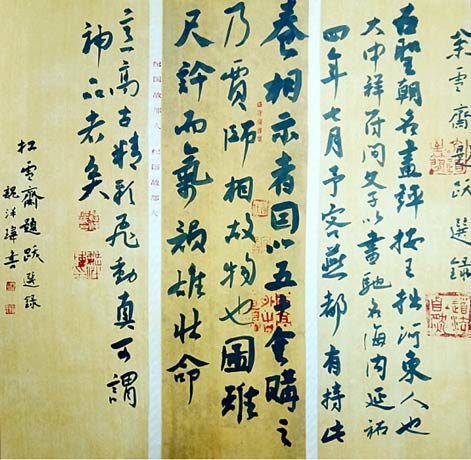 松雪齋題跋選錄
右聖朝名畫評按王拙河東人也
大中祥符间父子以畫馳名海内延祐
四年七月予客燕都有持此
卷相示者因以五百金購之
乃賈師相故物也圖雖
尺許而氣韻雄壯命
意高古精彩飛動真可謂
神品者矣
松雪齋題跋選録
書